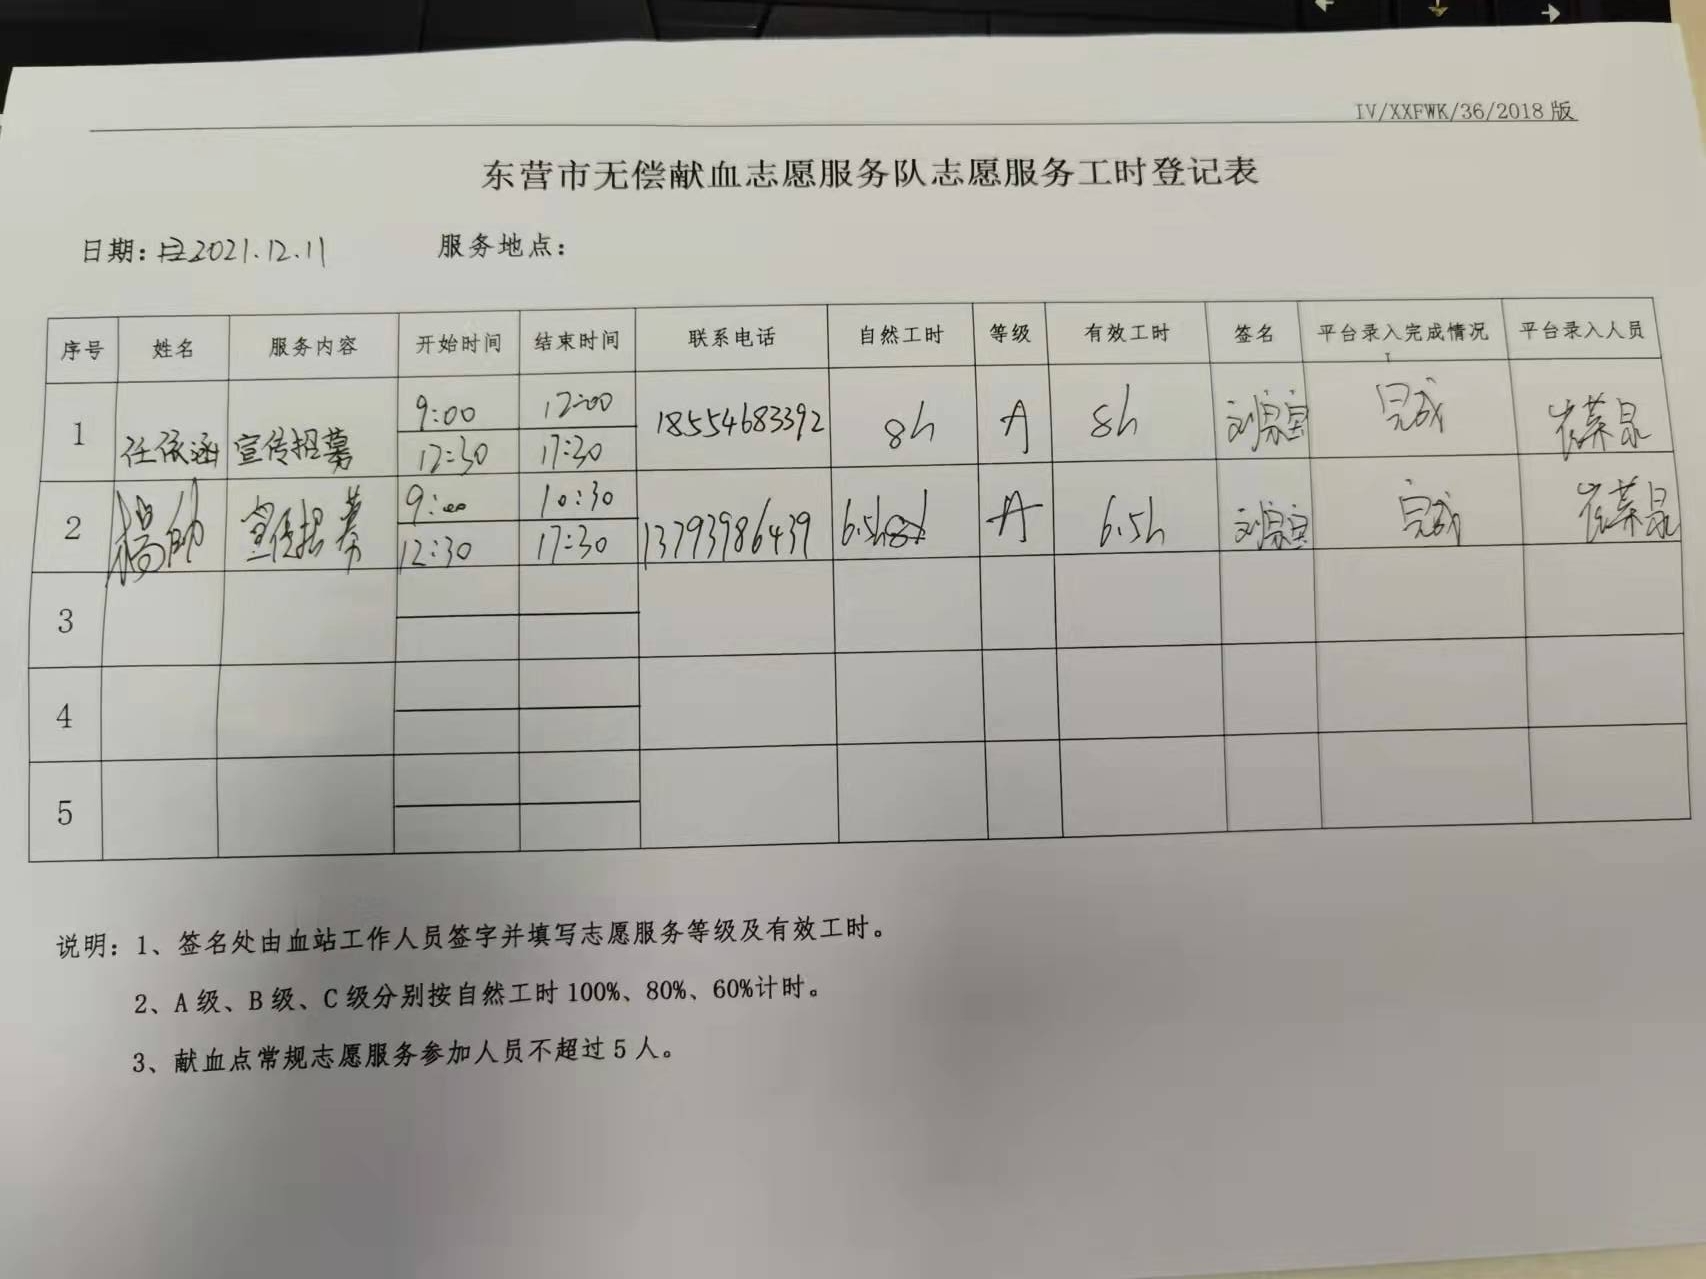 IV/XXFWK/36/2018版
东营市无偿献血志愿服务队志愿服务工时登记表
日期: 2021.12.11 服务地点:
序号 姓名 服务内容 开始时间 结束时间 联系电话 自然工时 等级 有效工时 签名 平台录入完成情况 平台录入人员
1 任依涵 宣传招募 9:00 12:00 18554683392 8h A 8h 完成
12:30 17:30
2 杨帅 宣传招募 9:00 10:30 13793986439 6.5h A 6.5h 完成
12:30 17:30
3
4
5
说明: 1、签名处由血站工作人员签字并填写志愿服务等级及有效工时。
2、A级、B级、C级分别按自然工时100%、80%、60%计时。
3、献血点常规志愿服务参加人员不超过5人。